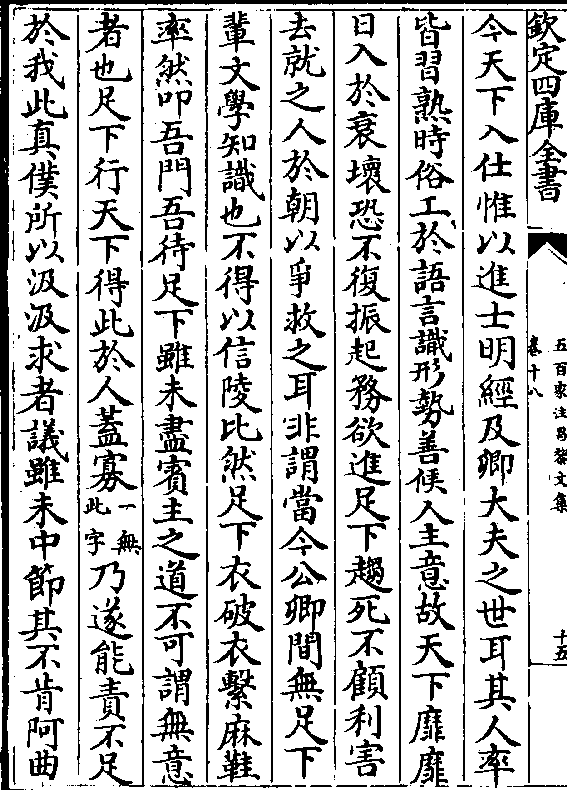 欽定四庫全書
五百家注昌黎文集
卷十八
十五
今天下入仕惟以進士明經及卿大夫之世耳其人率
皆習熟時俗工於語言識形勢善候人主意故天下靡靡
日入於衰壞恐不復振起務欲進足下趨死不顧利害
去就之人於朝以爭救之耳非謂當今公卿間無足下
輩文學知識也不得以信陵比然足下衣破衣繫麻鞋
率然叩吾門吾待足下雖未盡賓主之道不可謂無意
者也足下行天下得此於人蓋寡一無此字乃遂能責不足
於我此真僕所以汲汲求者議雖未中節其不肯阿曲